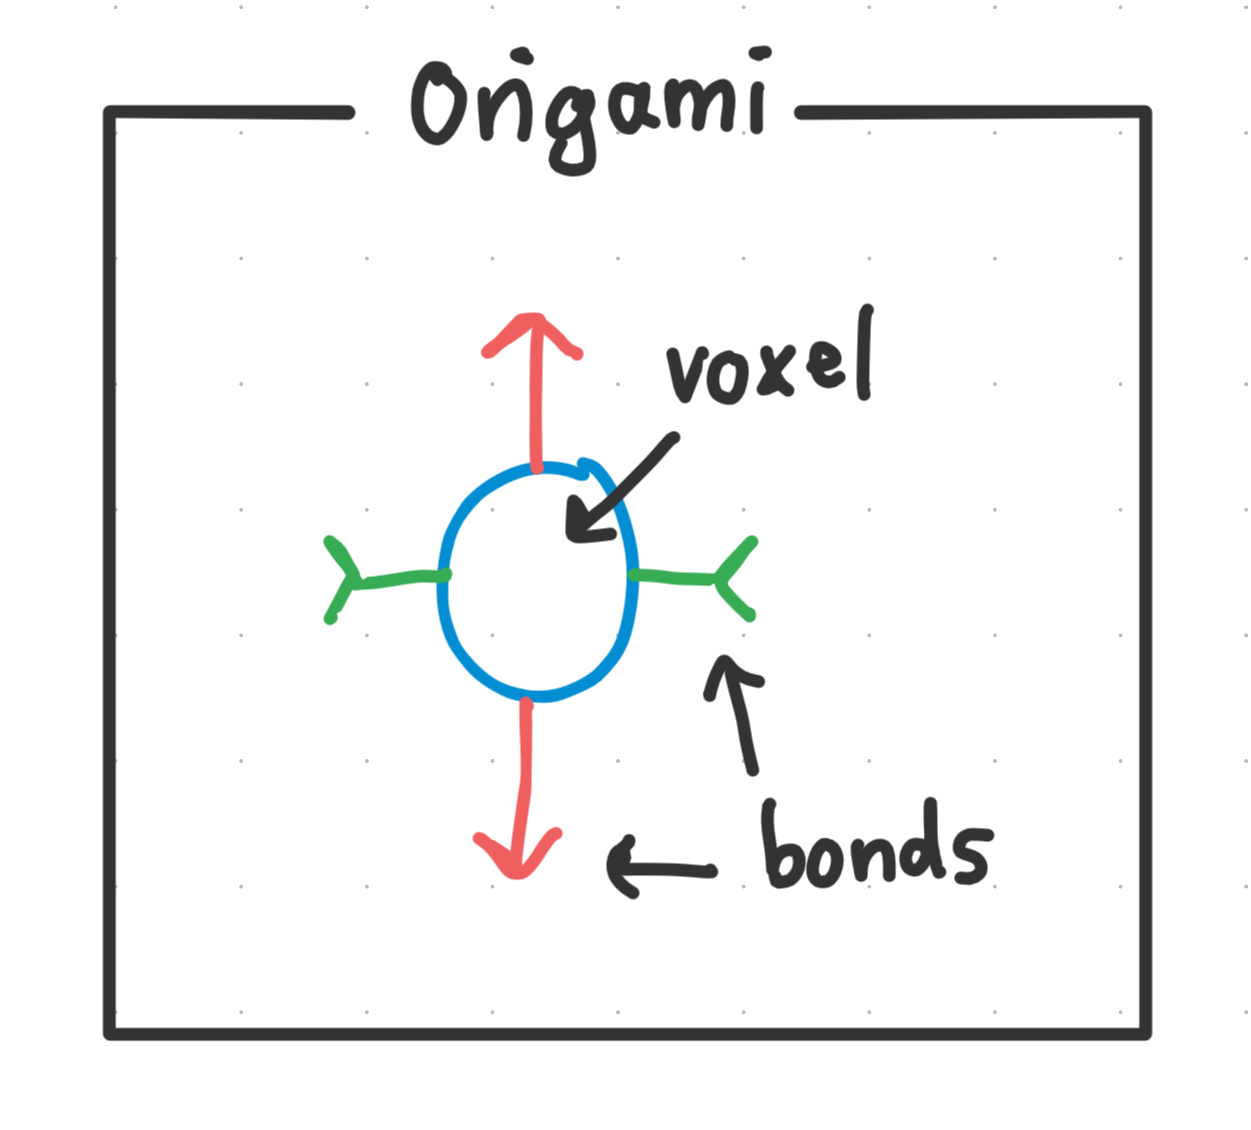 Origami
voxel
bonds